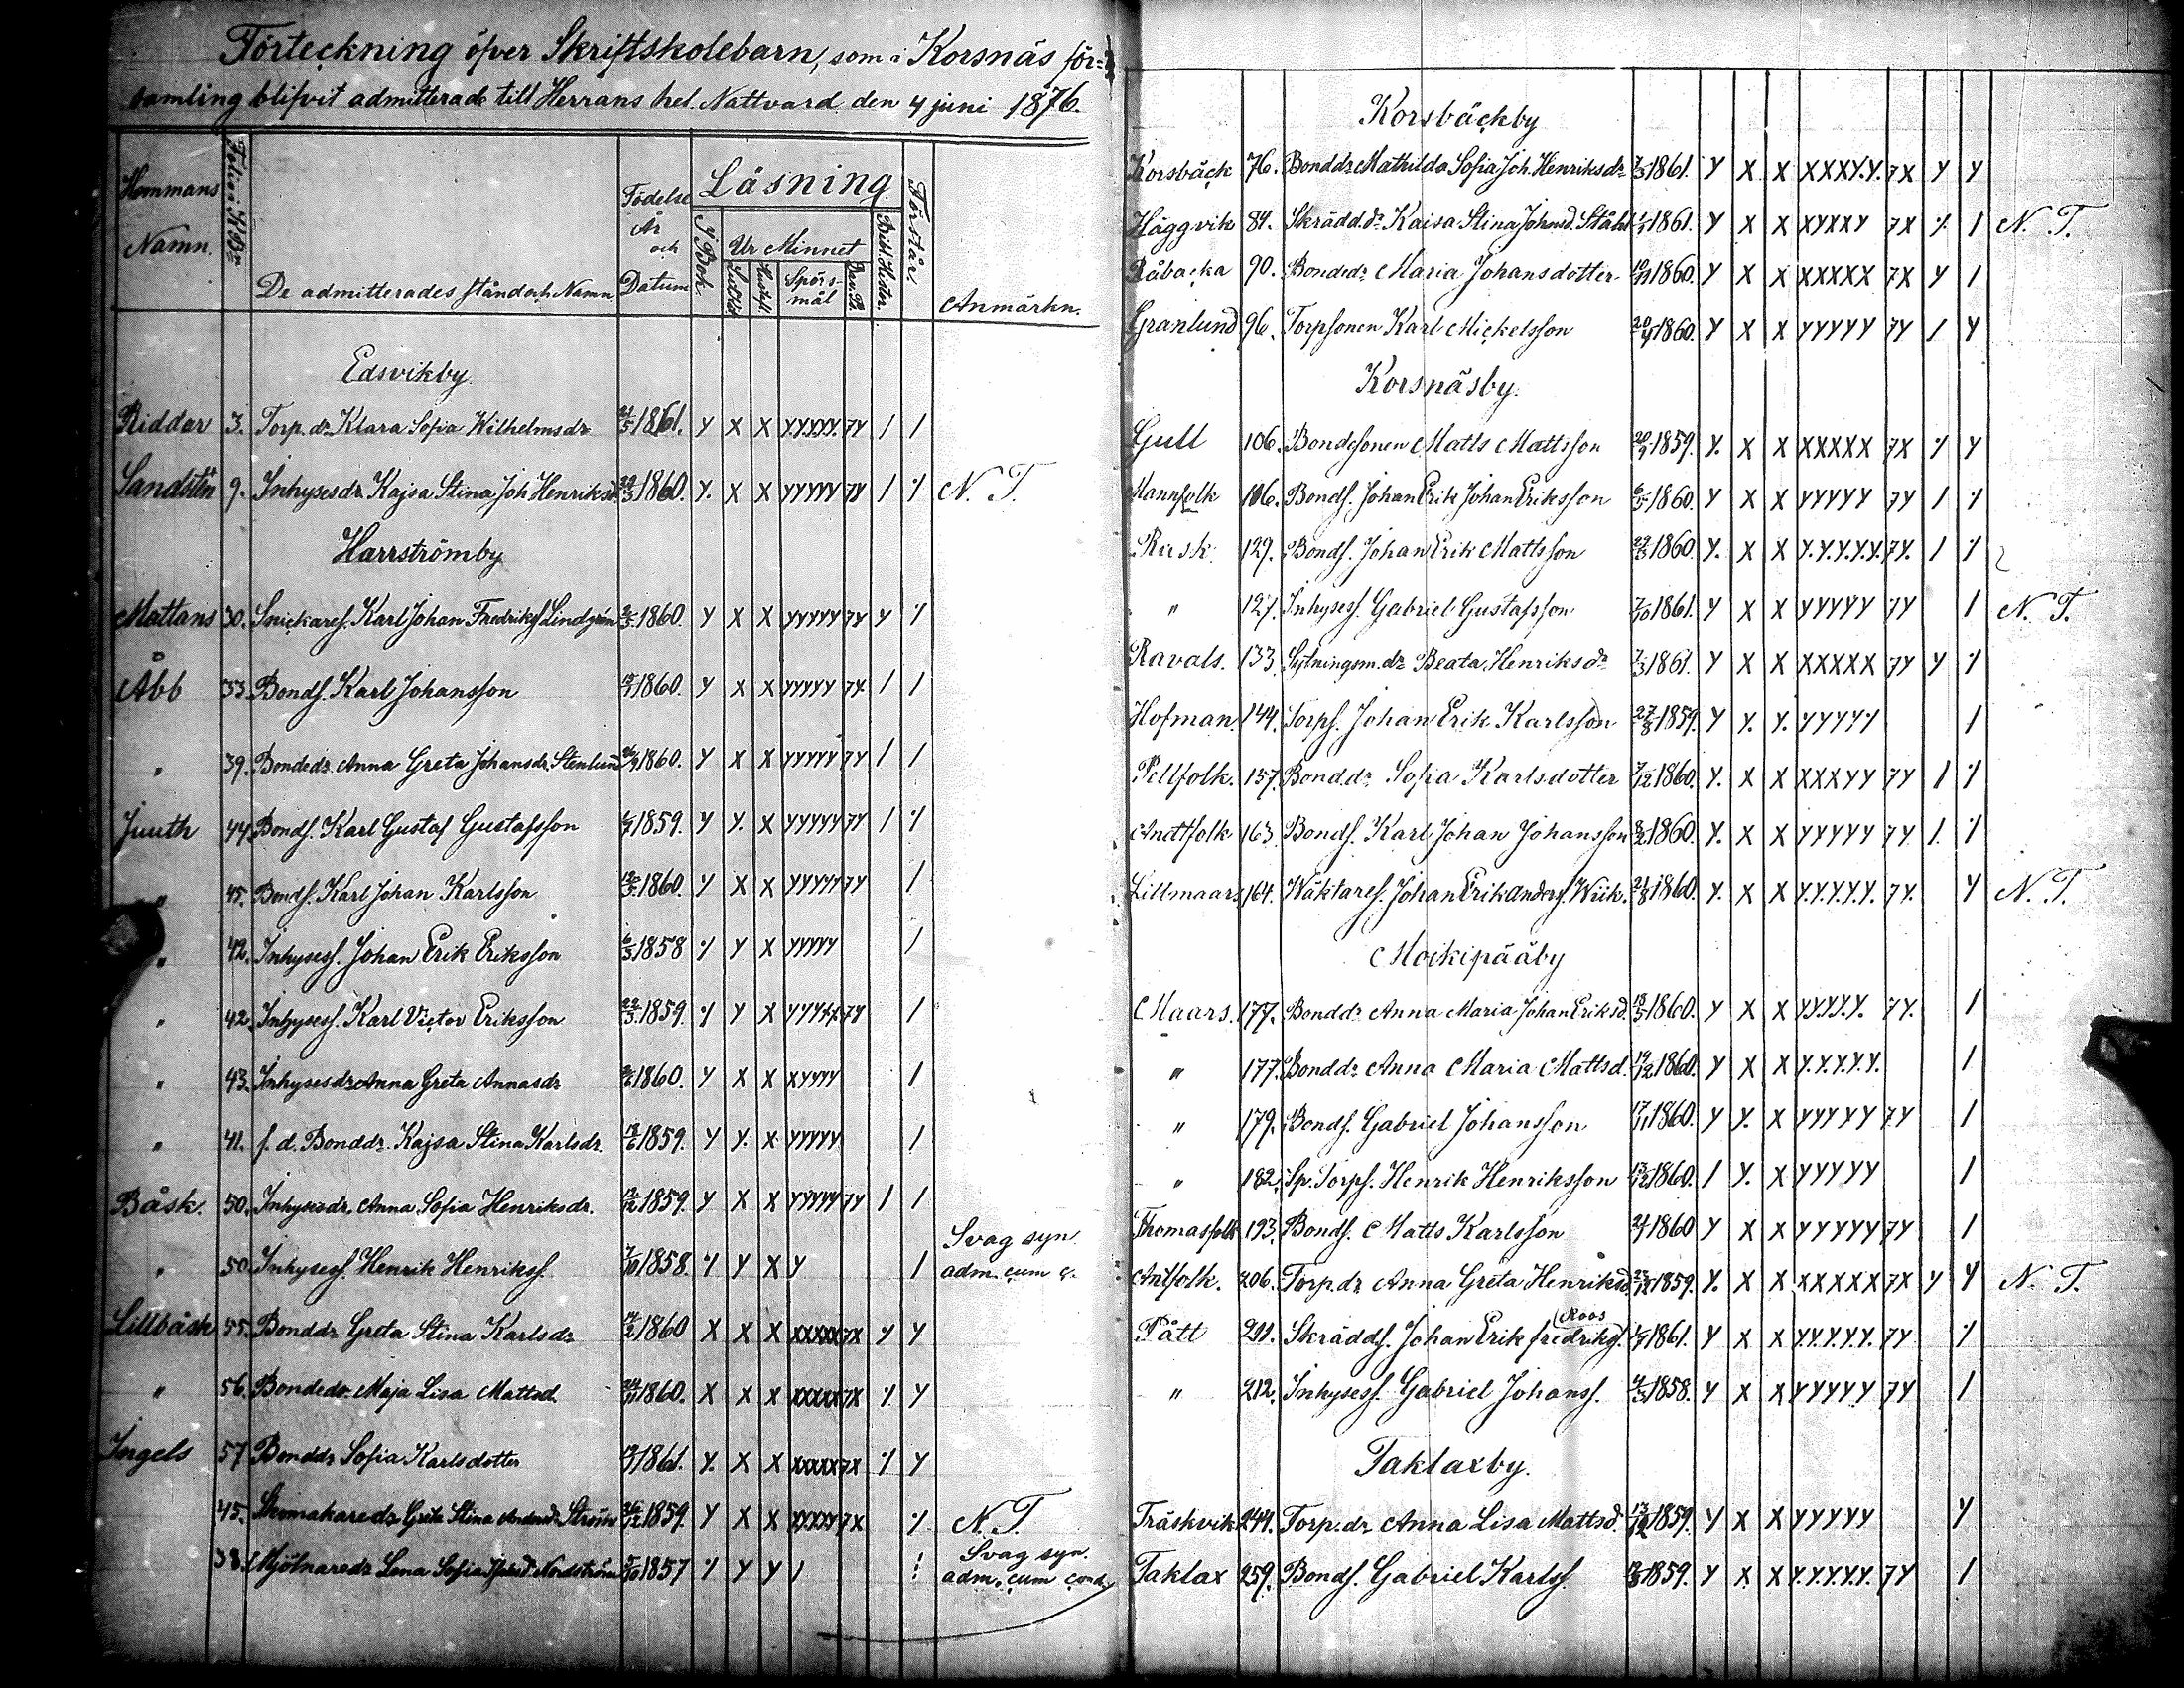 Förteckning öfver Skriftskolebarn, som i Korsnäs för-
samling blifvit admitterade till Herrans hel. Nattvard den 4 juni 1876.
Hemmans Namn. De admitterades stånd och Namn Födelse År och Datum Läsning I Bok. Ur Minnet Spörs-mål Bibl. Histor. Förstår. Anmärkn.
Edsvikby.
Ridder 3. Torp. dr Klara Sofia Wilhelmsdr 1861. Y X X 7Y / /
Sandsten 9. Inhysesdr Kajsa Stina Joh Henriksd. 1860. Y. X X YYYYY / N. T.
Harrströmby
Mattans 30. Snickares. Karl Johan Fredrikss Lindgren 1860. Y X X YYYYY 7Y Y
Åbb 33. Bonds. Karl Johansson 1860. Y X X YYYYY 7Y / /
" 39. Bondedr Anna Greta Johansdr Stenlund 1860. Y X X YYYYY 7Y / /
Juuth 44. Bonds. Karl Gustaf Gustafsson 1859. Y Y. X YYYYY 7Y /
" 45. Bonds. Karl Johan Karlsson 1860. Y X X YYYYY 7Y /
" 42. Inhysess. Johan Erik Eriksson 1858 Y X YYYYY /
" 42. Inhysess. Karl Victor Eriksson 22/3 1859. Y X 7Y /
" 43. Inhysesdr Anna Greta Annasdr 1860. Y X X XYYYY /
" 41. f. d. Bonddr. Kajsa Stina Karlsdr. 1859. Y Y. X YYYYY /
Båsk. 50. Inhysesdr. Anna Sofia Henriksdr. 1859. Y X X YYYYY 7Y / /
" 50. Inhysess. Henrik Henrikss. 7/10 1858. Y X Y / Svag syn.
adm. cum c.
Lillbåsk 55. Bonddr Greta Stina Karlsdr 1860 X X X XXXXX 7X Y
" 56. Bondedr Maja Lisa Mattsd. 1860. X X X XXXXX 7X Y
Ingels 57 Bonddr Sofia Karlsdotter 1861. Y. X X XXXXX 7X Y
45. Skomakaredr Greta Stina Andersd. Ström 26/12 1859. Y X X 7X N. T.
38. Mjölnaredr Lena Sofia Nordström 1857 Y Y / Svag syn.
adm. cum cond.
Korsbäckby
Korsbäck 76. Bonddr Mathilda Sofia Joh. Henriksdr 7/3 1861. Y X X XXXY.Y. 7X Y Y
Häggvik 84. Skrädd. dr Kaisa Stina Johansd. 1861. Y X X XYXXY 7X / N. T.
Råbacka 90. Bondedr Maria Johansdotter 1860. Y X X XXXXX 7X Y /
Granlund 96. Torpsonen Karl Mickelsson 1860. Y X X YYYYY 7Y / Y
Korsnäsby.
Gull 106. Bondesonen Matts Mattsson 1859. Y. X X XXXXX 7X Y
Mannfolk 106. Bonds. Johan Erik Johan Eriksson 1860. Y X X YYYYY 7Y /
Rusk 129. Bonds. Johan Erik Mattsson 1860. Y. X X Y.Y.Y.Y.Y. 7Y. /
" 127. Inhysess. Gabriel Gustafsson 7/10 1861. Y X X YYYYY 7Y / N. T.
Ravals. 133. Sytningsm. dr Beata Henriksdr 7/3 1861. Y X X XXXXX 7Y Y
Hofman. 144. Torps. Johan Erik Karlsson 27/8 1859. Y Y. Y. /
Pellfolk. 157. Bonddr. Sofia Karlsdotter 7/12 1860. Y. X X XXXYY 7Y /
Andtfolk 163. Bonds. Karl Johan Johansson 1860. Y. X X YYYYY 7Y /
Lillmaars 164. Wäktares. Johan Erik Anders. Wiik. 1860. Y. X X Y.Y.Y.Y.Y. 7Y. Y N. T.
Moikipääby
Maars. 177. Bonddr Anna Maria Johan Eriksd. 1860. Y X X YYYY.Y. 7Y. /
" 177. Bonddr Anna Maria Mattsd. 19/12 1860. Y X X Y.Y.Y.Y.Y. /
" 179. Bonds. Gabriel Johansson 17/11 1860. Y Y. X YYYYY 7Y /
" 182. Sp. Torps. Henrik Henriksson 13/12 1860. / Y. X YYYYY /
Thomasfolk 193. Bonds. Matts Karlsson 1860 Y X X YYYYY 7Y /
Antfolk. 206. Torp. dr Anna Greta Henriksd. 1859. Y. X X XXXXX 7X Y Y N. T.
Pått 211. Skrädds. Johan Erik Fredrikss. (Roos 1861. Y X X Y.Y.Y.Y.Y. 7Y
" 212. Inhysess. Gabriel Johanss. 1858. Y X X YYYYY 7Y /
Taklaxby.
Träskvik 244. Torp. dr Anna Lisa Mattsd. 1859. Y X X YYYYY Y
Taklax 259. Bonds. Gabriel Karlss. 1859. Y X X Y.Y.Y.Y.Y. 7Y /